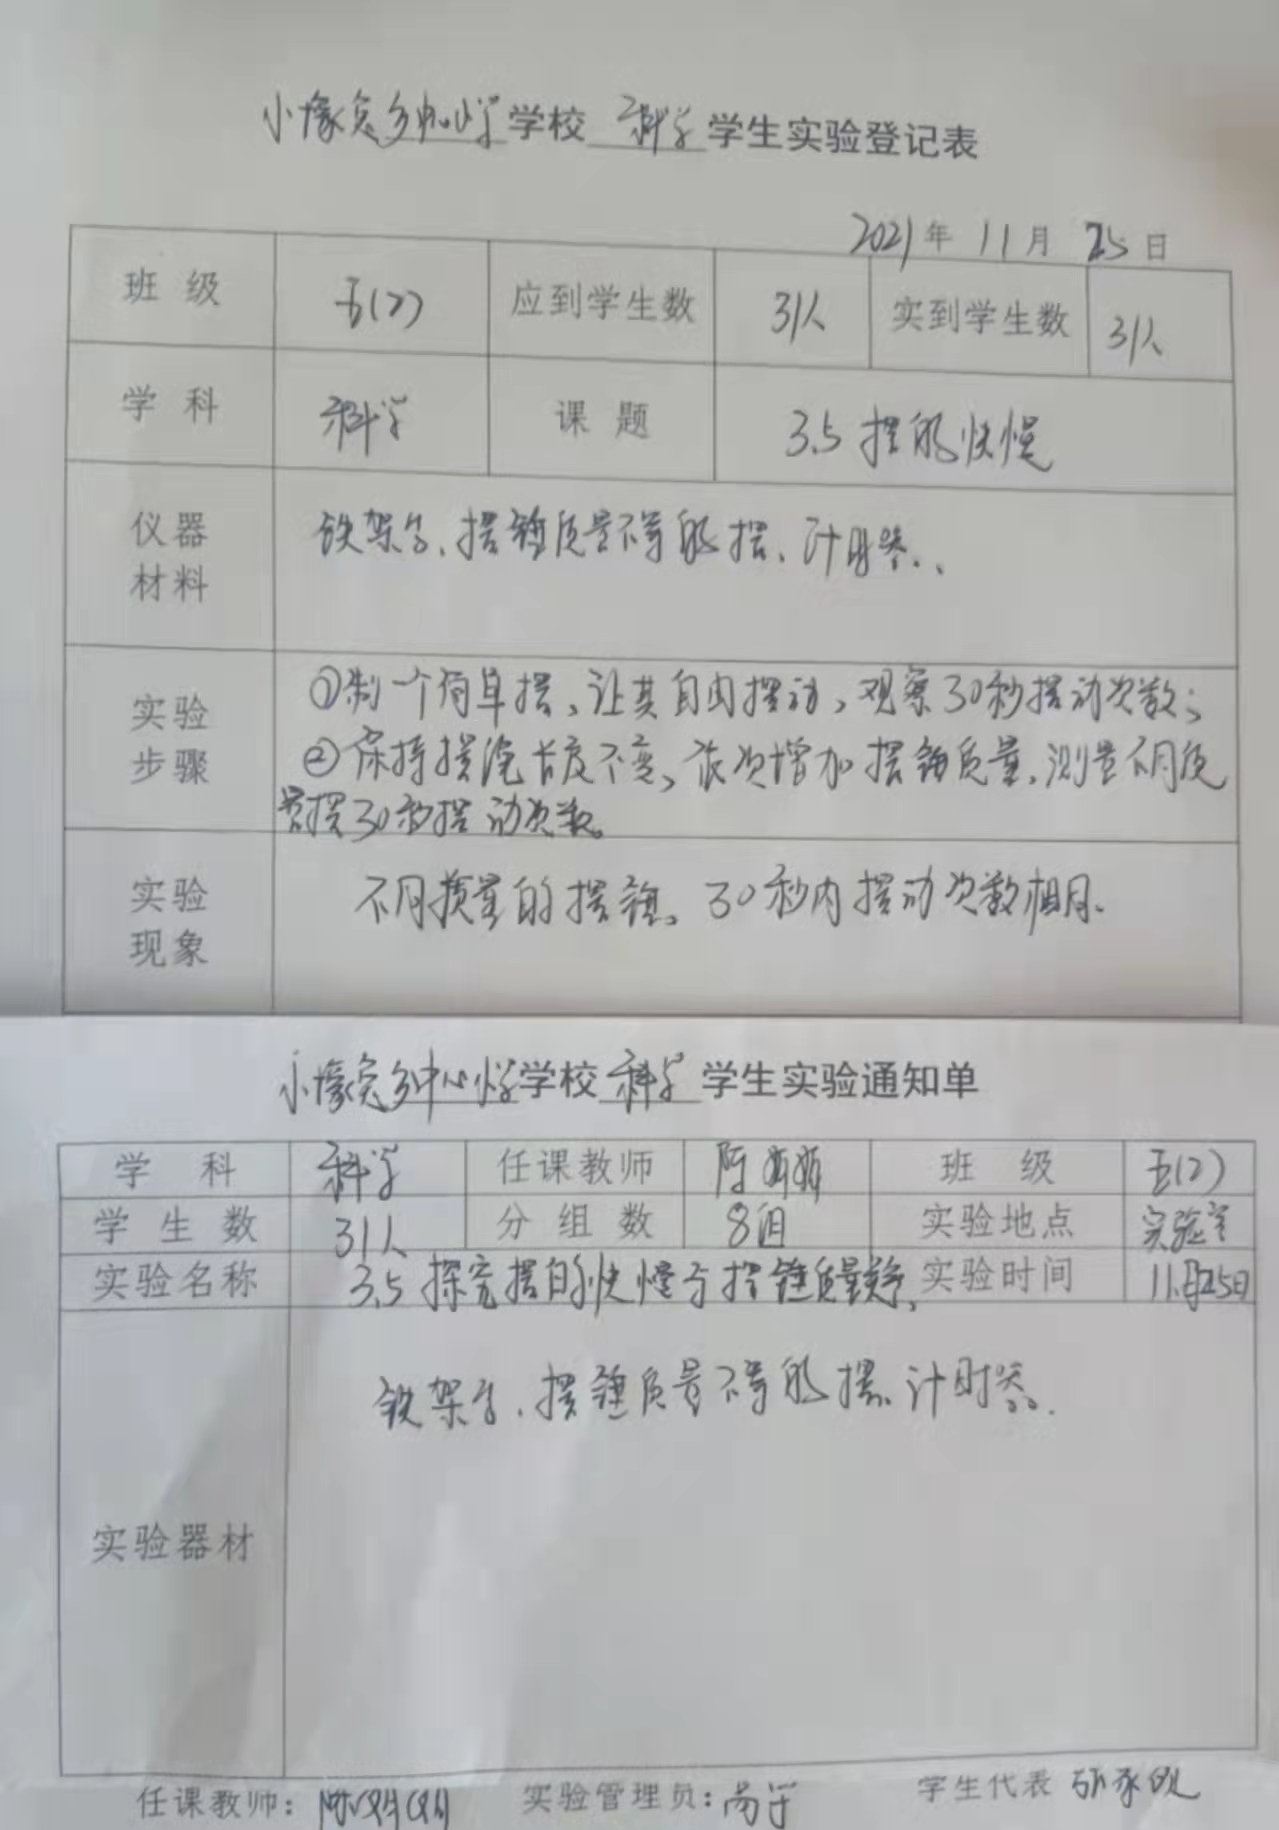 小壕兔乡中心小学学校 科学 学生实验登记表
2021年 11月 25日
班 级 五(2) 应到学生数 31人 实到学生数 31人
学 科 科学 课 题 3.5 摆的快慢
仪器
材料
铁架台、摆锤质量不等的摆、计时器、
实验
步骤
①制一个简单摆,让其自由摆动,观察30秒摆动次数;
②保持摆绳长度不变,依次增加摆锤质量,测量不同质
量摆30秒摆动次数。
实验
现象
不同质量的摆锤,30秒内摆动次数相同.
小壕兔乡中心小学学校 科学 学生实验通知单
学 科 科学 任课教师 陈 班 级 五(2)
学 生 数 31人 分 组 数 8组 实验地点 实验室
实验名称 3.5 探究摆的快慢与摆锤质量 实验时间 11月25日
实验器材
铁架台、摆锤质量不等的摆、计时器.
任课教师: 陈 实验管理员: 尚 学生代表